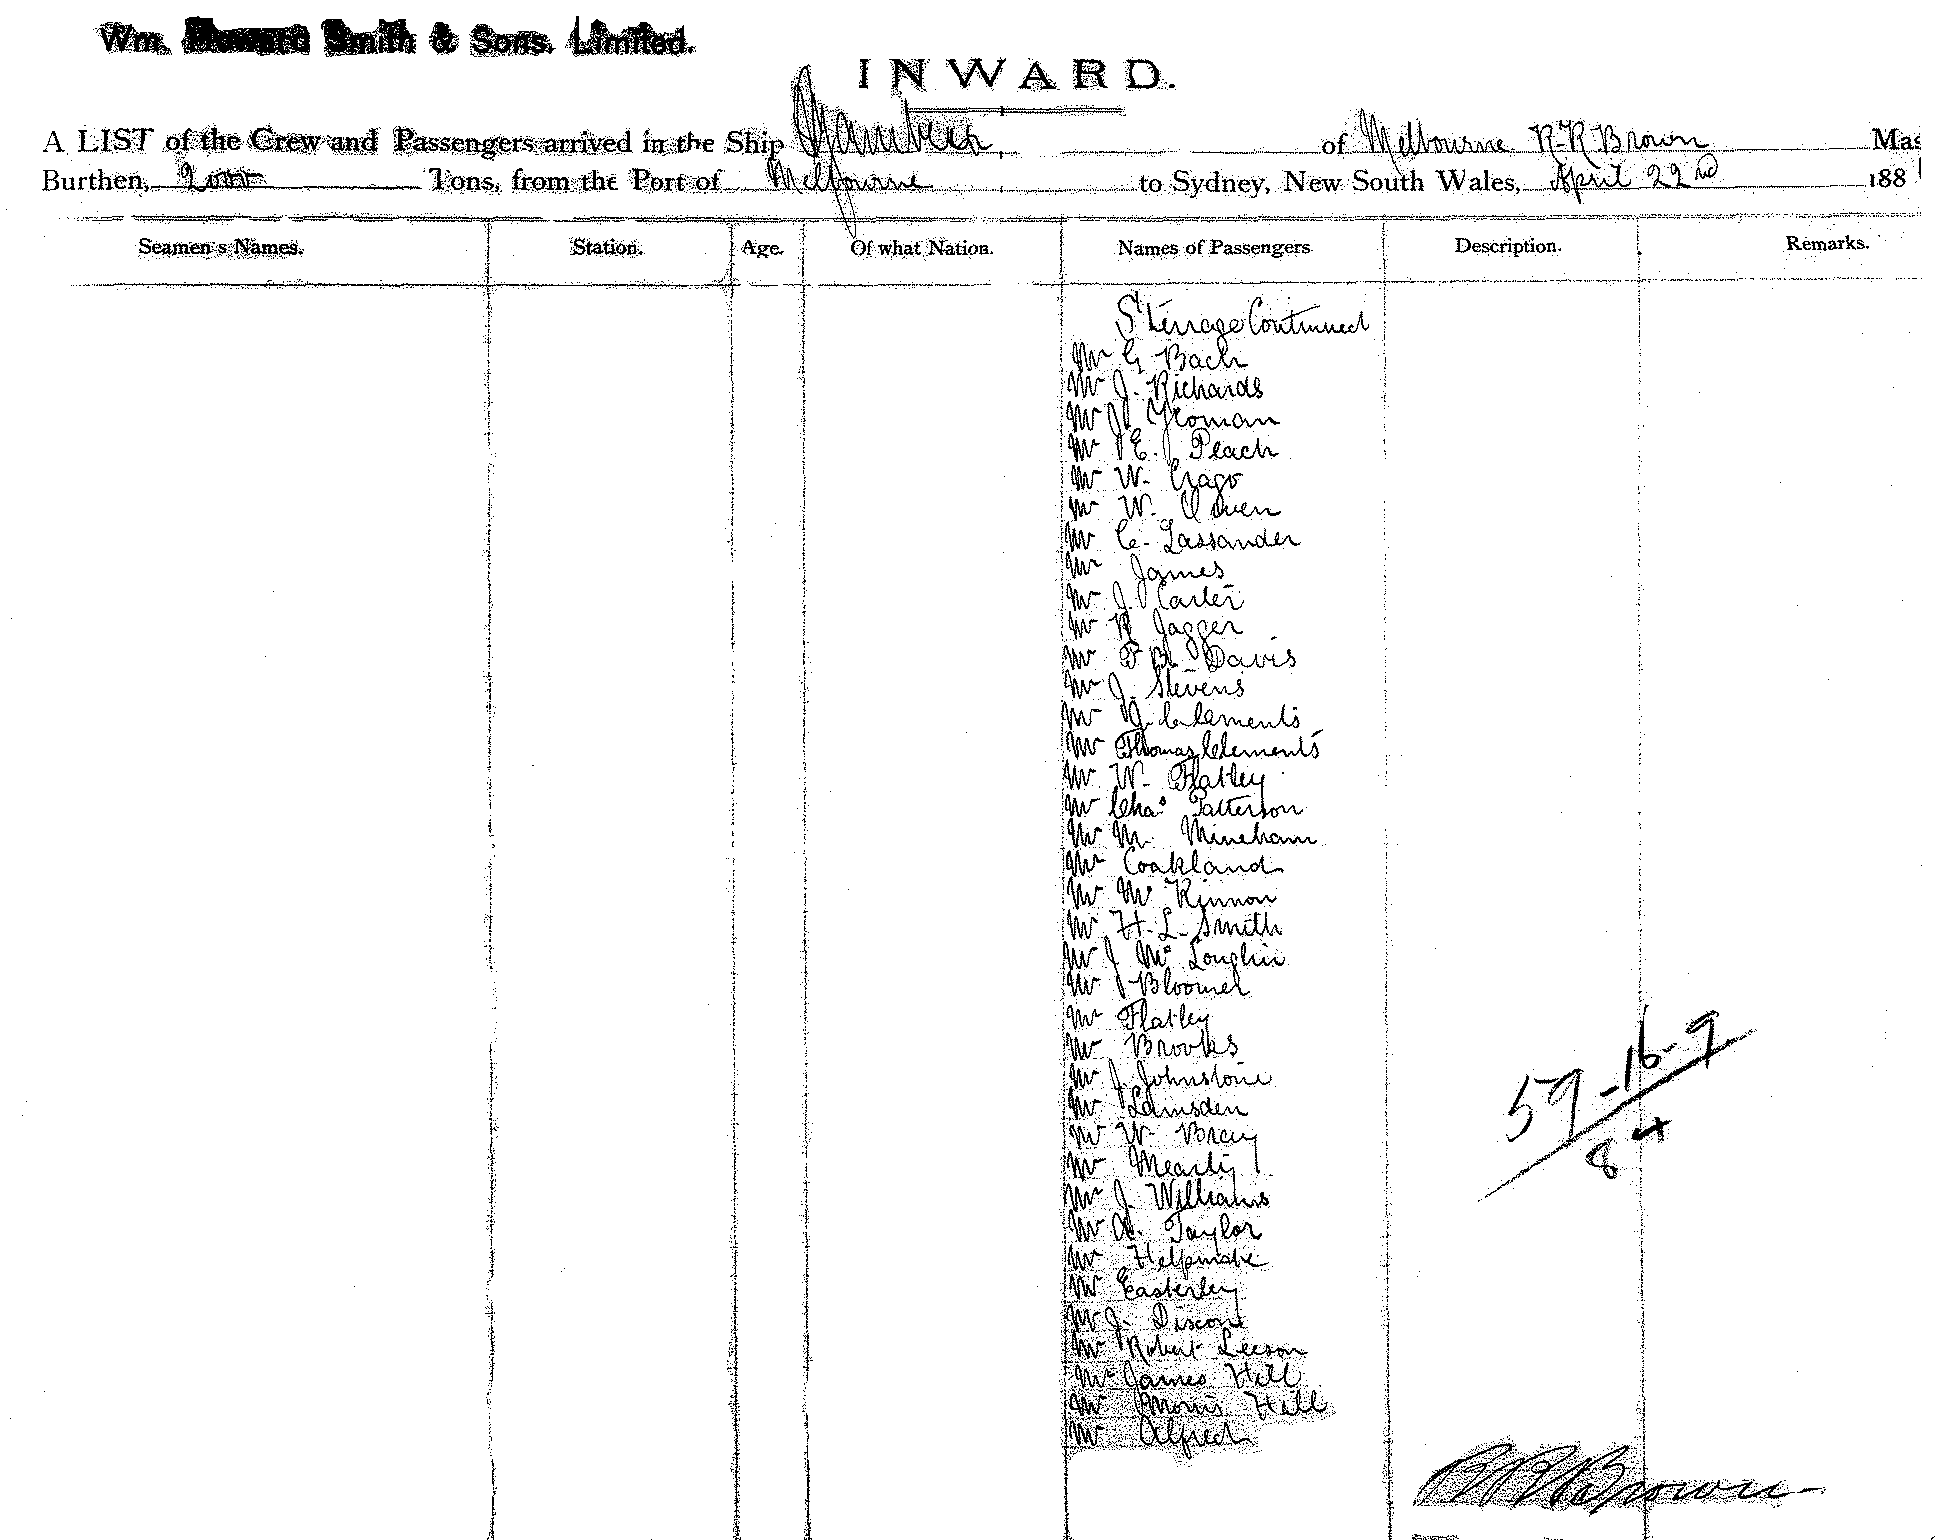 Wm. Howard Smith & Sons. Limited.
INWARD.
A LIST of the Crew and Passengers arrived in the Ship Gambier, of Melbourne R. R. Brown Mas
Burthen, Tons, from the Port of Melbourne to Sydney, New South Wales, April 22nd 188
Seamen's Names. Station. Age. Of what Nation. Names of Passengers Description. Remarks.
Sterrage Continued
Mr G Bach
Mr J. Richards
Mr J. Yeoman
Mr E. Peach
Mr W. Crago
Mr W. Owen
Mr C. Lassander
Mr James
Mr J. Carter
Mr R Jagger
Mr Davis
Mr J. Stevens
Mr J. Clements
Mr Thomas Clements
Mr W. Flatley
Mr Chas Patterson
Mr M. Mineham
Mr Coakland
Mr Mc Kinnon
Mr H. L. Smith
Mr J Mc Loughlin
Mr J Bloomer
Mr Flatley
Mr Brooks
Mr J. Johnstone
Mr Lamsden
Mr W Bray
Mr
Mr J. Williams
Mr A. Taylor
Mr Helpmate
Mr Easterley
Mr J.
Mr Robert Leeson
Mr James Hill
Mr Morris Hall
Mr Alfred
59-16-9
84
R R Brown